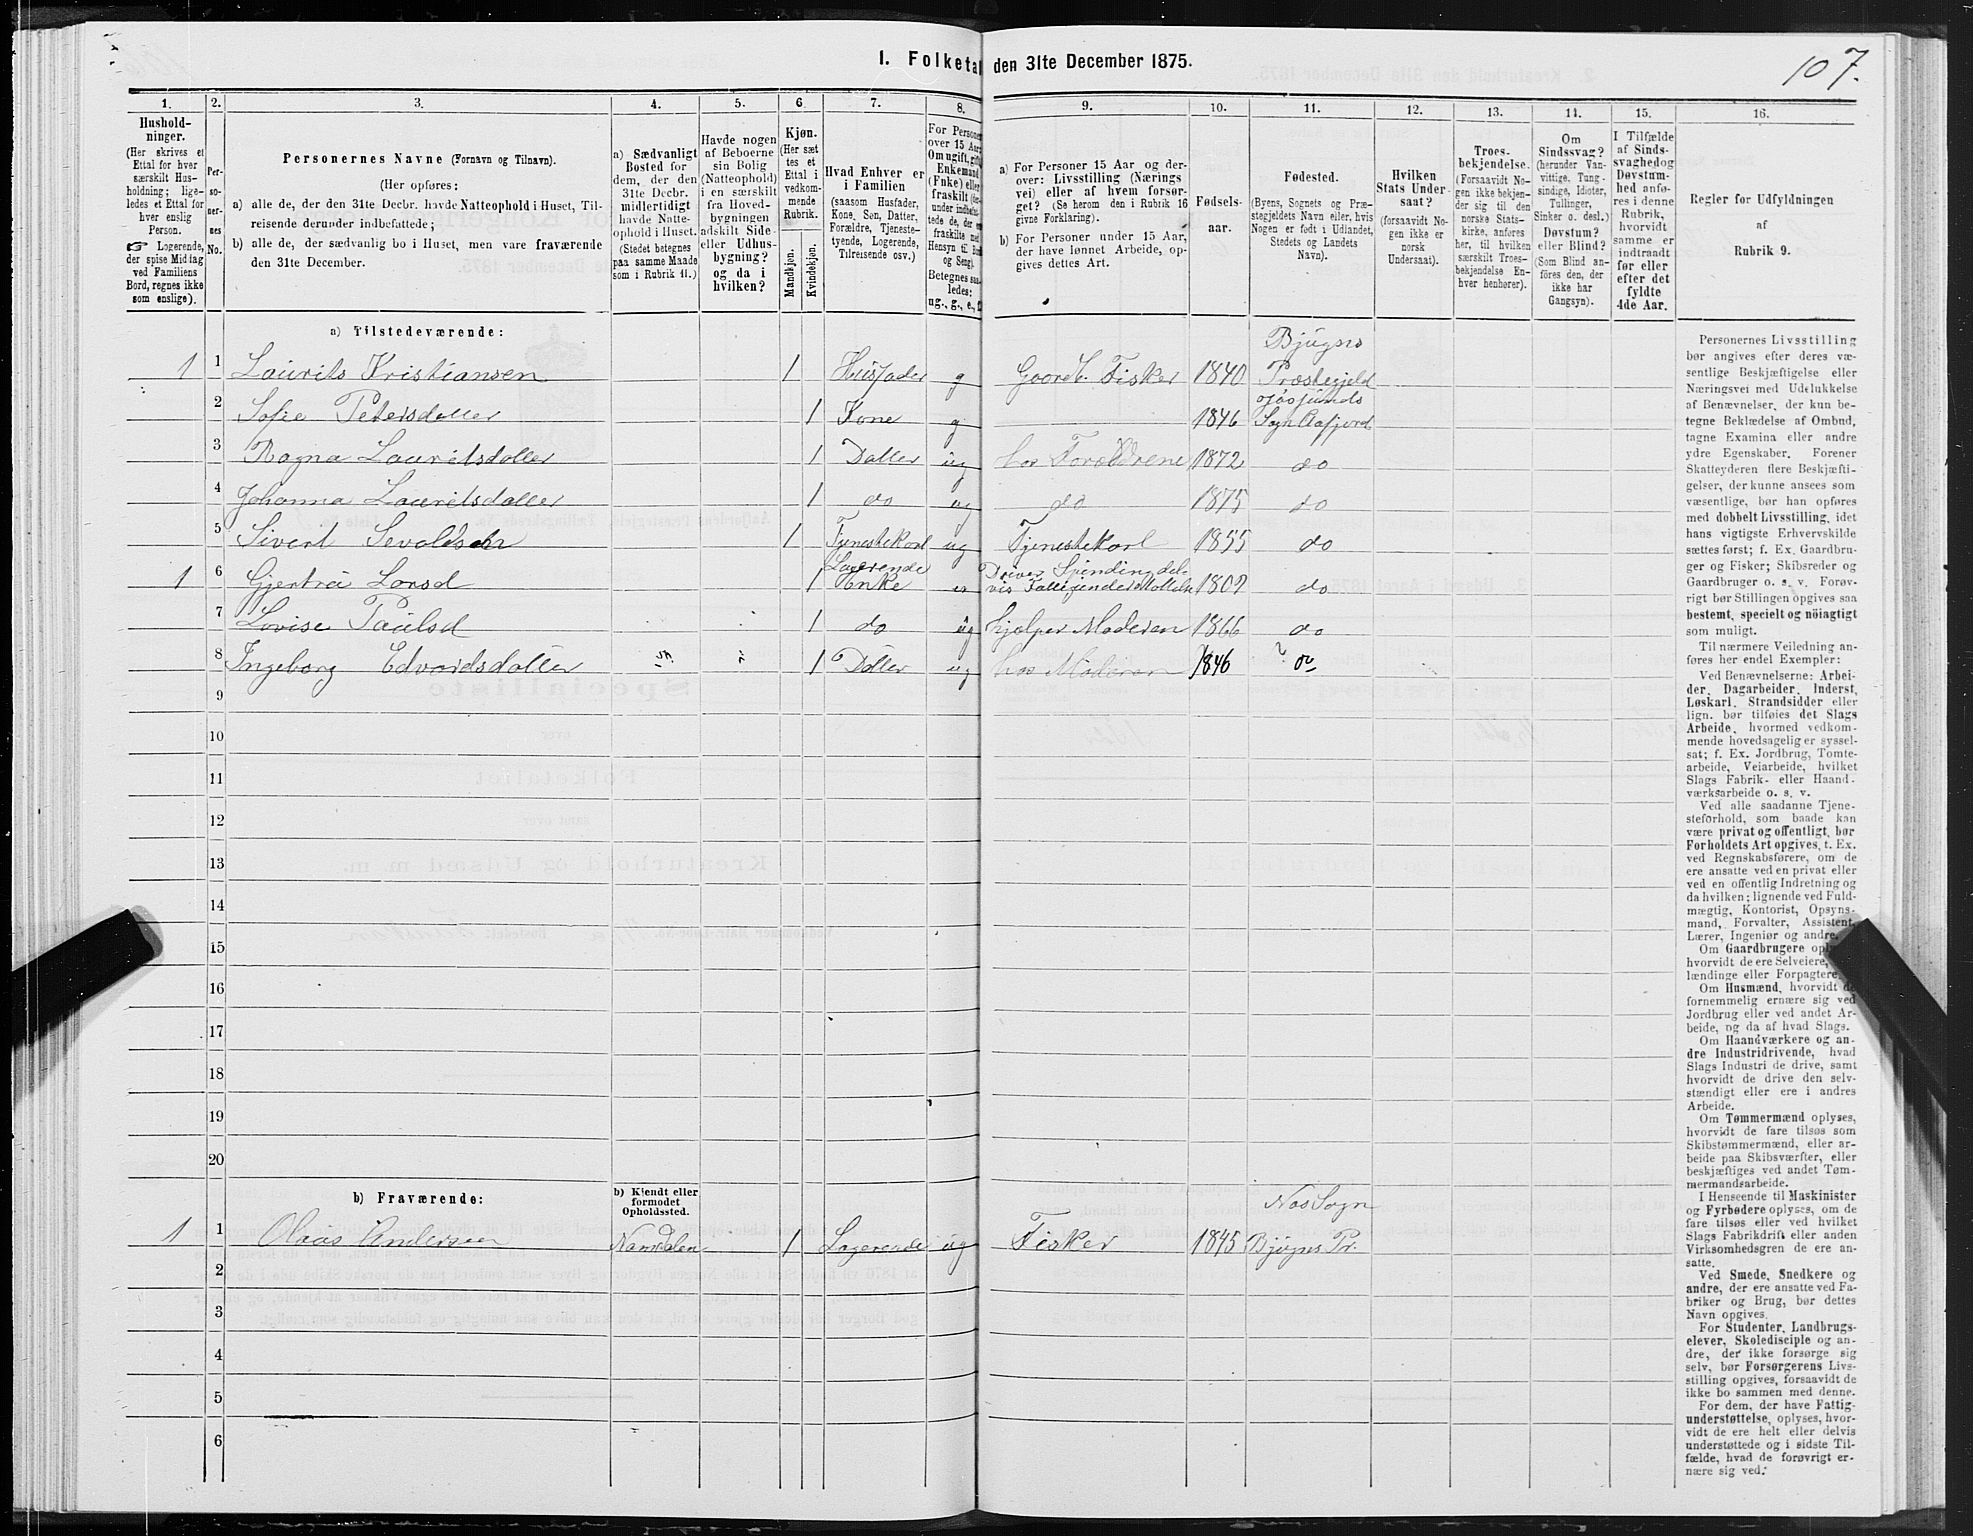 1. Folketal den 31te December 1875.
107.
1.
2.
3.
4.
5.
6.
7.
8.
9.
10.
11.
12.
13.
14.
15.
16.
Hushold-
ninger.
(Her skrives et
Ettal for hver
særskilt Hus-
holdning; lige-
ledes et Ettal for
hver enslig
Person.
☞ Logerende,
der spise Middag
ved Familiens
Bord, regnes ikke
som enslige).
Per-
so-
ner-
nes
No.
Personernes Navne (Fornavn og Tilnavn).
(Her opføres:
a) alle de, der den 31te Decbr. havde Natteophold i Huset, Til-
reisende derunder indbefattede;
b) alle de, der sædvanlig bo i Huset, men vare fraværende
den 31te December.
a) Sædvanligt
Bosted for
dem, der den
31te Decbr.
midlertidigt
havde Natte-
ophold i Huset.
(Stedet betegnes
paa samme Maade
som i Rubrik 11.)
Havde nogen
af Beboerne
sin Bolig
(Natteophold)
i en særskilt
fra Hoved-
bygningen
adskilt Side-
eller Udhus-
bygning?
og da i
hvilken?
Kjøn.
(Her sæt
tes et
Ettal i
vedkom-
mende
Rubrik.
Mandkjøn.
Kvindekjøn.
Hvad Enhver er
i Familien
(saasom Husfader,
Kone, Søn, Datter,
Forældre, Tjeneste-
tyende, Logerende,
Tilreisende osv.)
For Personer
over 15 Aar
Om ugift, gift,
Enkemand
(Enke) eller
fraskilt
Hensyn til Bord
og Seng).
Betegnes saa-
ledes:
ug., g., e., f.
a) For Personer 15 Aar og der-
over: Livsstilling (Nærings
vei) eller af hvem forsør-
get? (Se herom den i Rubrik 16
givne Forklaring).
b) For Personer under 15 Aar,
der have lønnet Arbeide, op-
gives dettes Art.
Fødsels-
aar.
Fødested.
(Byens, Sognets og Præ-
stegjeldets Navn eller, hvis
Nogen er født i Udlandet,
Stedets og Landets
Navn).
Hvilken
Stats Under-
saat?
(forsaavidt No-
gen ikke er
norsk
Undersaat).
Troes-
bekjendelse.
(Forsaavidt No-
gen ikke bekjen-
der sig til den
norske Stats-
kirke, anføres
her, til hvilken
særskilt Troes-
bekjendelse En-
hver henhører).
Om
Sindssvag?
(herunder Van-
vittige, Tung-
sindige, Idioter,
Tullinger,
Sinker o. desl.)
Døvstum?
eller Blind?
(Som Blind an-
føres den, der
ikke har
Gangsyn).
I Tilfælde
af Sinds-
svaghed og
Døvstum-
hed anfø-
res i denne
Rubrik,
hvorvidt
samme er
indtraadt
før eller
efter det
fyldte
4de Aar.
Regler for Udfyldningen
af
Rubrik 9.
a) Tilstedeværende:
1 1 Laurits Kristiansen 1 Husfader g Gaardb. Fisker 1840 Bjugns Præstegjeld
2 Sofie Petersdatter 1 Kone g 1846 Jøsfunds Sogn Aafjord
3 Ragna Lauritsdatter 1 Datter ug hos Forældrene 1872 do
4 Johanna Lauritsdatter 1 do ug do 1875 do
5 Sivert Sevaldsen 1 Tjenestekarl ug Tjenestekarl 1855 do
1 6 Gjertrú Larsd 1 Logerende Enke e Driver Spinding del- 1809 do
7 Lovise Paulsd 1 do ug hjelper Moderen 1866 do
8 Ingeborg Edvardsdatter 1 Datter ug hos Moderen 1846 ? do
9
10
11
12
13
14
15
16
17
18
19
20
b) Fraværende:
b) Kjendt eller
formodet
Opholdssted.
1 1 Olaus Andersen Namdalen 1 Logerende ug Fisker 1845 Nes Sogn Bjugns Pr.
2
3
4
5
6
Personernes Livsstilling
bør angives efter deres væ-
sentlige Beskjæftigelse eller
Næringsvei med Udelukkelse
af Benævnelser, der kun be-
tegne Beklædelse af Ombud,
tagne Examina eller andre
ydre Egenskaber. Forener
Skatteyderen flere Beskjæfti-
gelser, der kunne ansees som
væsentlige, bør han opføres
med dobbelt Livsstilling, idet
hans vigtigste Erhvervskilde
sættes først; f. Ex. Gaardbru-
ger og Fisker; Skibsreder og
Gaardbruger o. s. v. Forøv-
rigt bør Stillingen opgives saa
bestemt, specielt og nöiagtigt
som muligt.
Til nærmere Veiledning an-
føres her endel Exempler:
Ved Benævnelserne: Arbei-
der, Dagarbeider, Inderst,
Løskarl, Strandsidder eller
lign. bør tilføies det Slags
Arbeide, hvormed vedkom-
mende hovedsagelig er syssel-
sat; f. Ex. Jordbrug, Tomte-
arbeide, Veiarbeide, hvilket
Slags Fabrik- eller Haand-
værksarbeide o. s. v.
Ved alle saadanne Tjene-
steforhold, som baade kan
være privat og offentligt, bør
Forholdets Art opgives, t. Ex.
ved Regnskabsførere, om de
ere ansatte ved en privat eller
ved en offentlig Indretning og
da hvilken; lignende ved Fuld-
mægtig, Kontorist, Opsyns-
mand, Forvalter, Assistent,
Lærer, Ingeniør og andre.
Om Gaardbrugere
hvorvidt de ere Selveiere,
lændinge eller Forpagtere.
Om Husmænd, hvorvidt de
fornemmelig ernære sig ved
Jordbrug eller ved andet Ar-
beide, og da af hvad Slags.
Om Haandværkere og an-
dre Industridrivende, hvad
Slags Industri de drive, samt
hvorvidt de drive den selv-
stændigt eller ere i andres
Arbeide.
Om Tømmermænd oplyses,
hvorvidt de fare tilsøs som
Skibstømmermænd, eller ar-
beide paa Skibsværfter, eller
beskjæftiges ved andet Tøm-
mermandsarbeide.
I Henseende til Maskinister
og Fyrbødere oplyses, om de
fare tilsøs eller ved hvilket
Slags Fabrikdrift eller anden
Virksomhedsgren de ere an-
satte.
Ved Smede, Snedkere og
andre, der ere ansatte ved Fa-
briker og Brug, bør dettes
Navn opgives.
For Studenter, Landbrugs-
elever, Skoledisciple og an-
dre, der ikke forsørge sig
selv, bør Forsørgerens Livs-
stilling opgives, forsaavidt de
ikke bo sammen med denne.
For dem, der have Fattig-
understøttelse, oplyses, hvor-
vidt de ere helt eller delvis
understøttede og i sidste Til-
fælde, hvad de forøvrigt er-
nære sig ved.